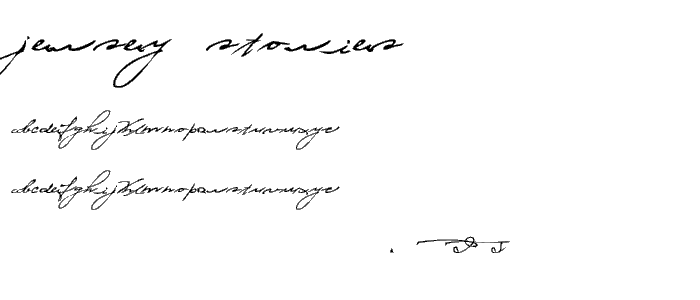 jersey stories
abcdefghijklmnopqrstuvwxyz
abcdefghijklmnopqrstuvwxyz